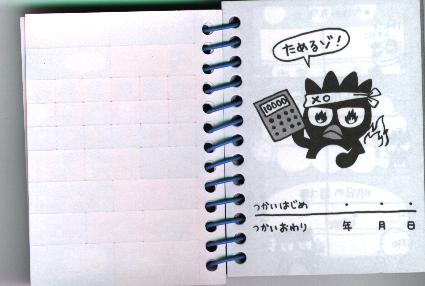 ためるゾ!
10000
XO
つかいはじめ ・ ・ ・
つかいおわり 年 月 日